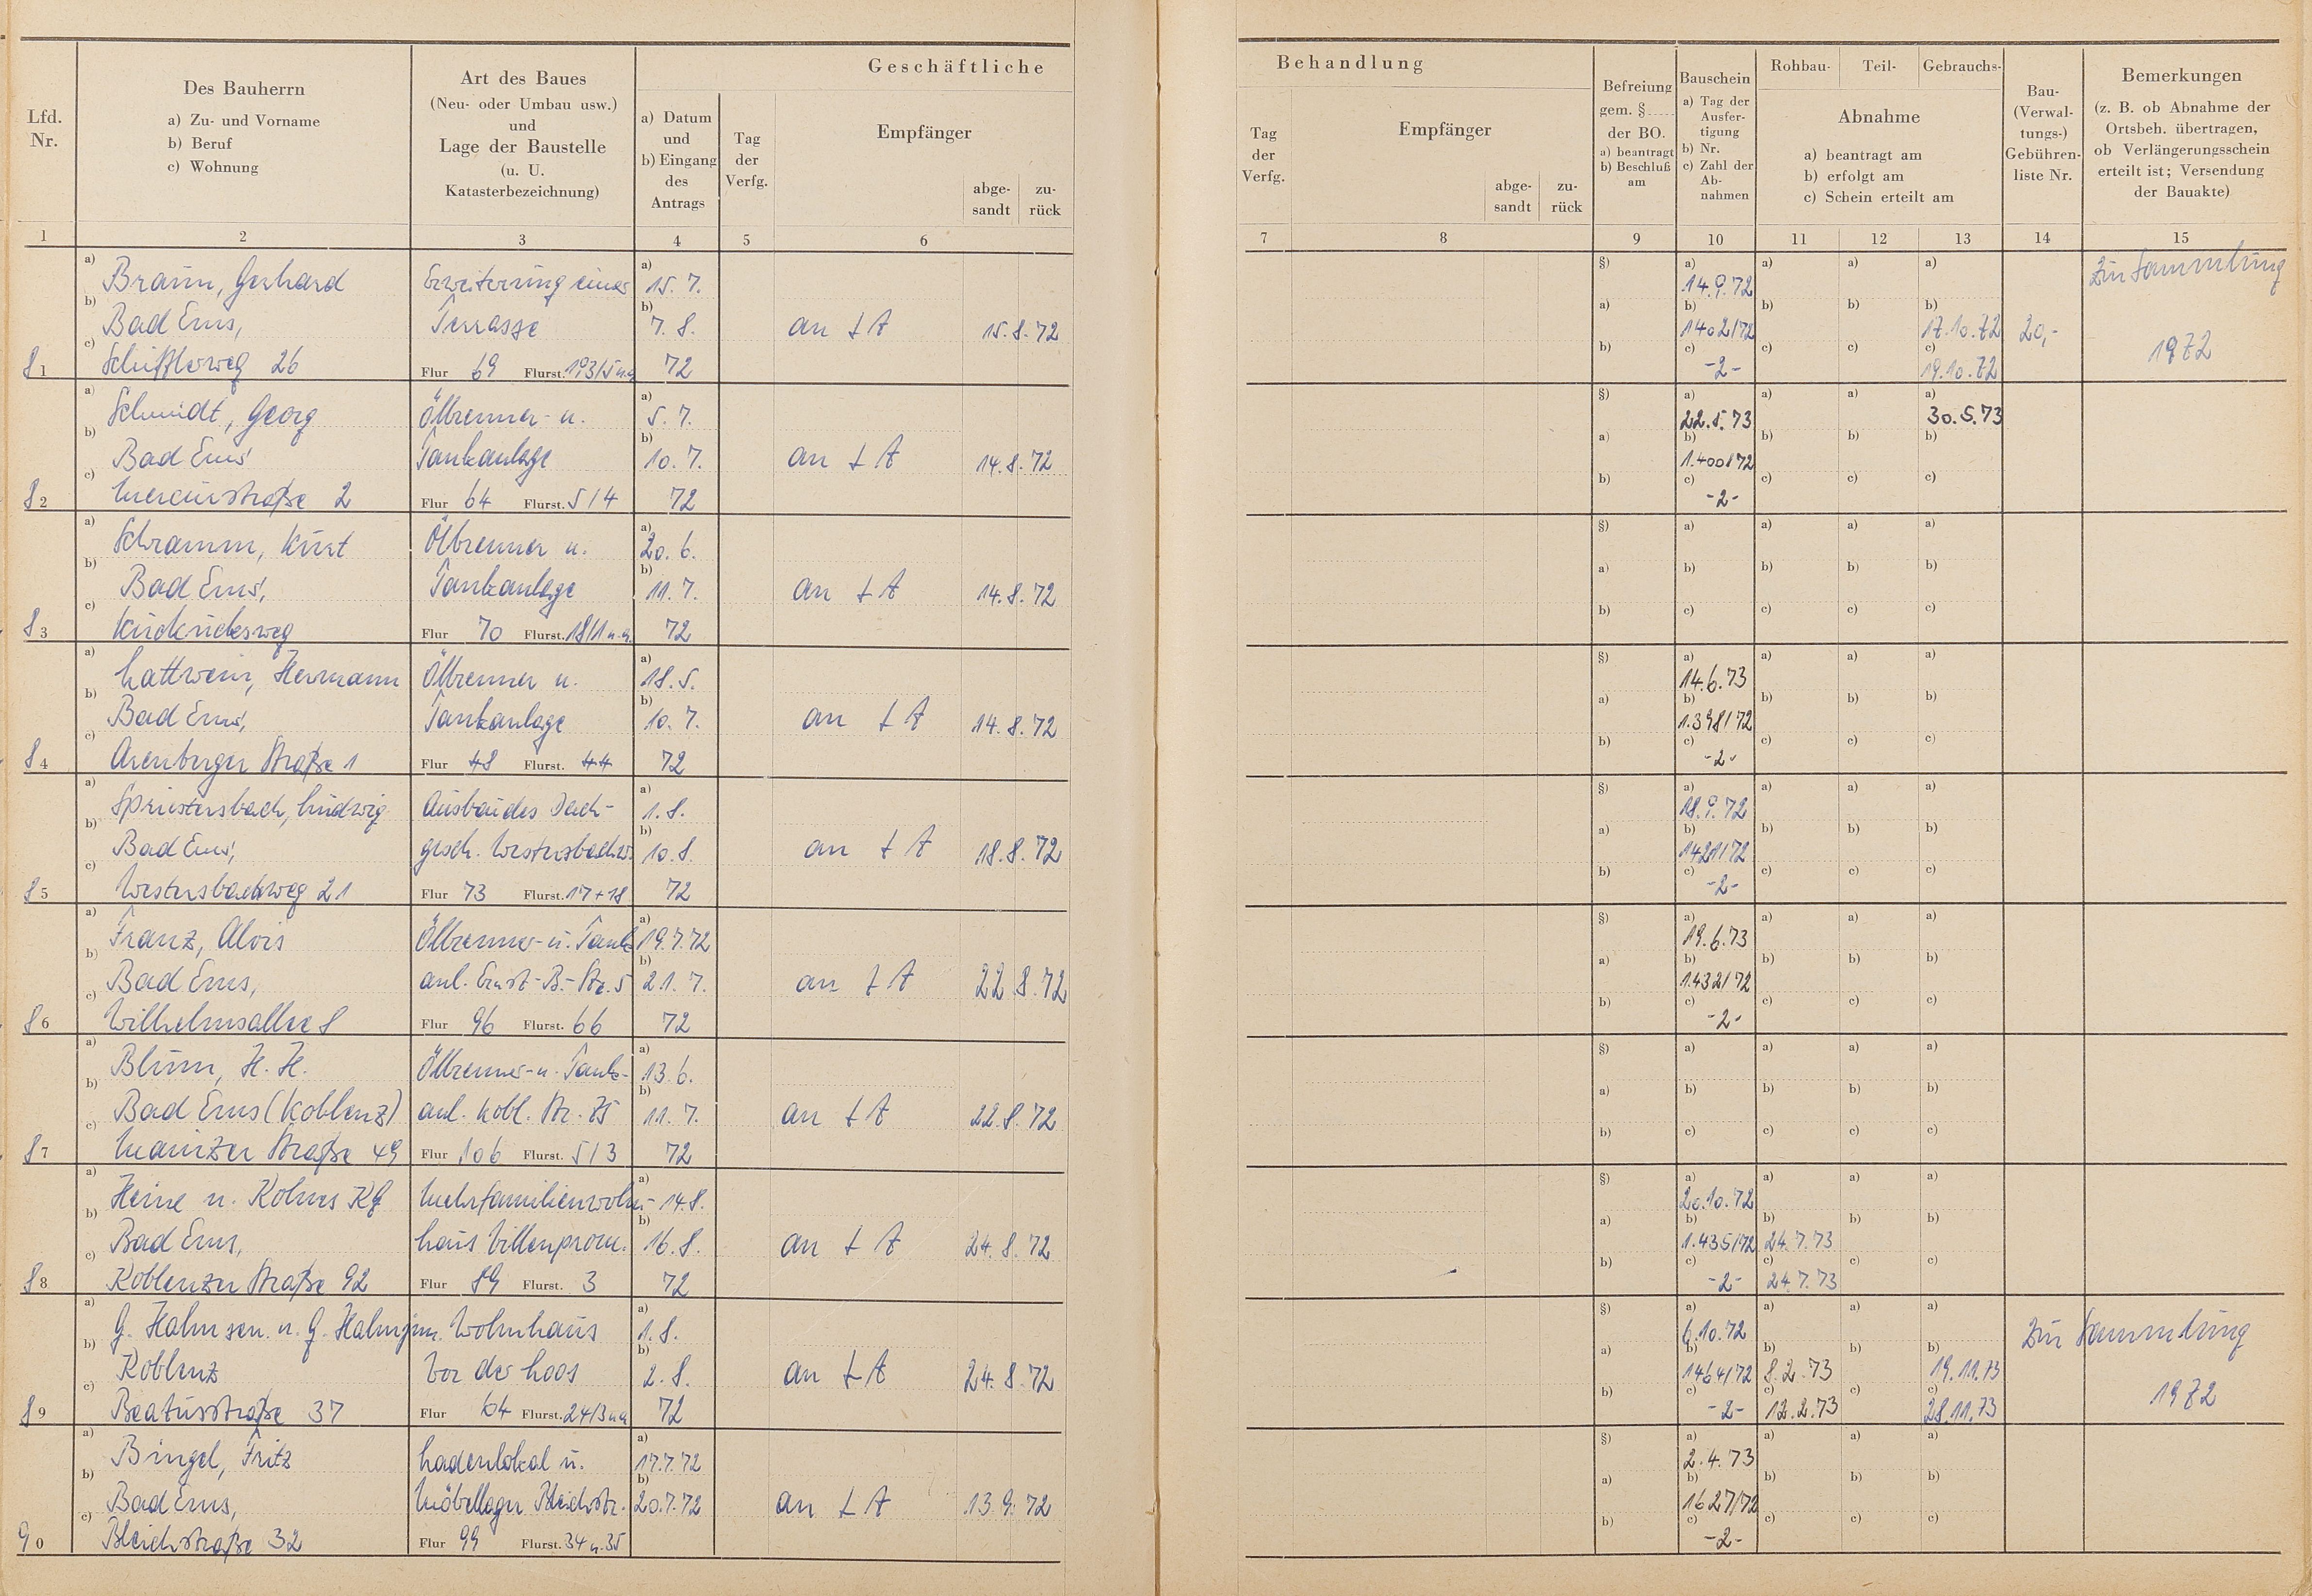 Geschäftliche Behandlung
Lfd. Nr.
Des Bauherrn
a) Zu- und Vorname
b) Beruf
c) Wohnung
Art des Baues
(Neu- oder Umbau usw.)
und
Lage der Baustelle
(u. U.
Katasterbezeichnung)
a) Datum
und
b) Eingang
des
Antrags
Tag
der
Verfg.
Empfänger
abge-
sandt
zu-
rück
Tag
der
Verfg.
Empfänger
abge-
sandt
zu-
rück
Befreiung
gem. §
der BO.
a) beantragt
b) Beschluß
am
Bauschein
a) Tag der
Ausfer-
tigung
b) Nr.
c) Zahl der
Ab-
nahmen
Rohbau- Teil- Gebrauchs-
Abnahme
a) beantragt am
b) erfolgt am
c) Schein erteilt am
Bau-
(Verwal-
tungs-)
Gebühren-
liste Nr.
Bemerkungen
(z. B. ob Abnahme der
Ortsbeh. übertragen,
ob Verlängerungsschein
erteilt ist; Versendung
der Bauakte)
1 2 3 4 5 6 7 8 9 10 11 12 13 14 15
a) Braun, Gerhard Erweiterung einer a) 15. 7. §) a) 14.9.72 a) a) a) Zur Sammlung
b) Bad Ems, Terrasse b) 7. 8. an LA 15.8.72 a) b) 1402/72 b) b) b) 17.10.72 20,-
81 c) 26 Flur 69 Flurst. 193/5 u.a. 72 b) c) -2- c) c) c) 19.10.72 1972
a) Schmidt, Georg Ölbrenner- u. a) 5. 7. §) a) 22.5.73 a) a) a) 30.5.73
b) Bad Ems Tankanlage b) 10. 7. an LA 14.8.72 a) b) 1.400/72 b) b) b)
82 c) Mercurstraße 2 Flur 64 Flurst. 5/4 72 b) c) -2- c) c) c)
a) Schramm, Kurt Ölbrenner u. a) 20. 6. §) a) a) a) a)
b) Bad Ems, Tankanlage b) 11. 7. an LA 14.8.72 a) b) b) b) b)
83 c) Kuckucksweg Flur 70 Flurst. 18/1 u.a. 72 b) c) c) c) c)
a) Lattwein, Hermann Ölbrenner u. a) 18. 5. §) a) 14.6.73 a) a) a)
b) Bad Ems, Tankanlage b) 10. 7. an LA 14.8.72 a) b) 1.398/72 b) b) b)
84 c) Arenberger Straße 1 Flur 48 Flurst. 44 72 b) c) -2- c) c) c)
a) Spriestersbach, Ludwig Ausbau des Dach- a) 1. 8. §) a) 18.9.72 a) a) a)
b) Bad Ems, gesch. Westersbachw. b) 10. 8. an LA 18.8.72 a) b) 1421/72 b) b) b)
85 c) Westersbachweg 21 Flur 73 Flurst. 17+18 72 b) c) -2- c) c) c)
a) Franz, Alois Ölbrenner- u. Tank- a) 19.7.72 §) a) 19.6.73 a) a) a)
b) Bad Ems, anl. Ernst-B.-Str. 5 b) 21. 7. an LA 22.8.72 a) b) 1.432/72 b) b) b)
86 c) Wilhelmsallee 8 Flur 96 Flurst. 66 72 b) c) -2- c) c) c)
a) Blum, H. H. Ölbrenner- u. Tank- a) 13. 6. §) a) a) a) a)
b) Bad Ems (Koblenz) anl. Kobl. Str. 75 b) 11. 7. an LA 22.8.72 a) b) b) b) b)
87 c) Mainzer Straße 49 Flur 106 Flurst. 5/3 72 b) c) c) c) c)
a) Heine u. KG Mehrfamilienwohn- a) 14.8. §) a) 20.10.72 a) a) a)
b) Bad Ems, haus Villenprom. b) 16. 8. an LA 24.8.72 a) b) 1.435/72 b) 24.7.73 b) b)
88 c) Koblenzer Straße 92 Flur 89 Flurst. 3 72 b) c) -2- c) 24.7.73 c) c)
a) G. Hahn sen. u. G. Hahn jun. Wohnhaus a) 1. 8. §) a) 6.10.72 a) a) a) Zur Sammlung
b) Koblenz Vor der Hoos b) 2. 8. an LA 24.8.72 a) b) 1464/72 b) 8.2.73 b) b) 19.11.73
89 c) Beatusstraße 37 Flur 64 Flurst. 24/3 u.a. 72 b) c) -2- c) 12.2.73 c) c) 28.11.73 1972
a) Bingel, Fritz Ladenlokal u. a) 17.7.72 §) a) 2.4.73 a) a) a)
b) Bad Ems, Möbellager Bleichstr. b) 20.7.72 an LA 13.9.72 a) b) 1627/72 b) b) b)
90 c) Bleichstraße 32 Flur 99 Flurst. 34 u. 35 b) c) -2- c) c) c)